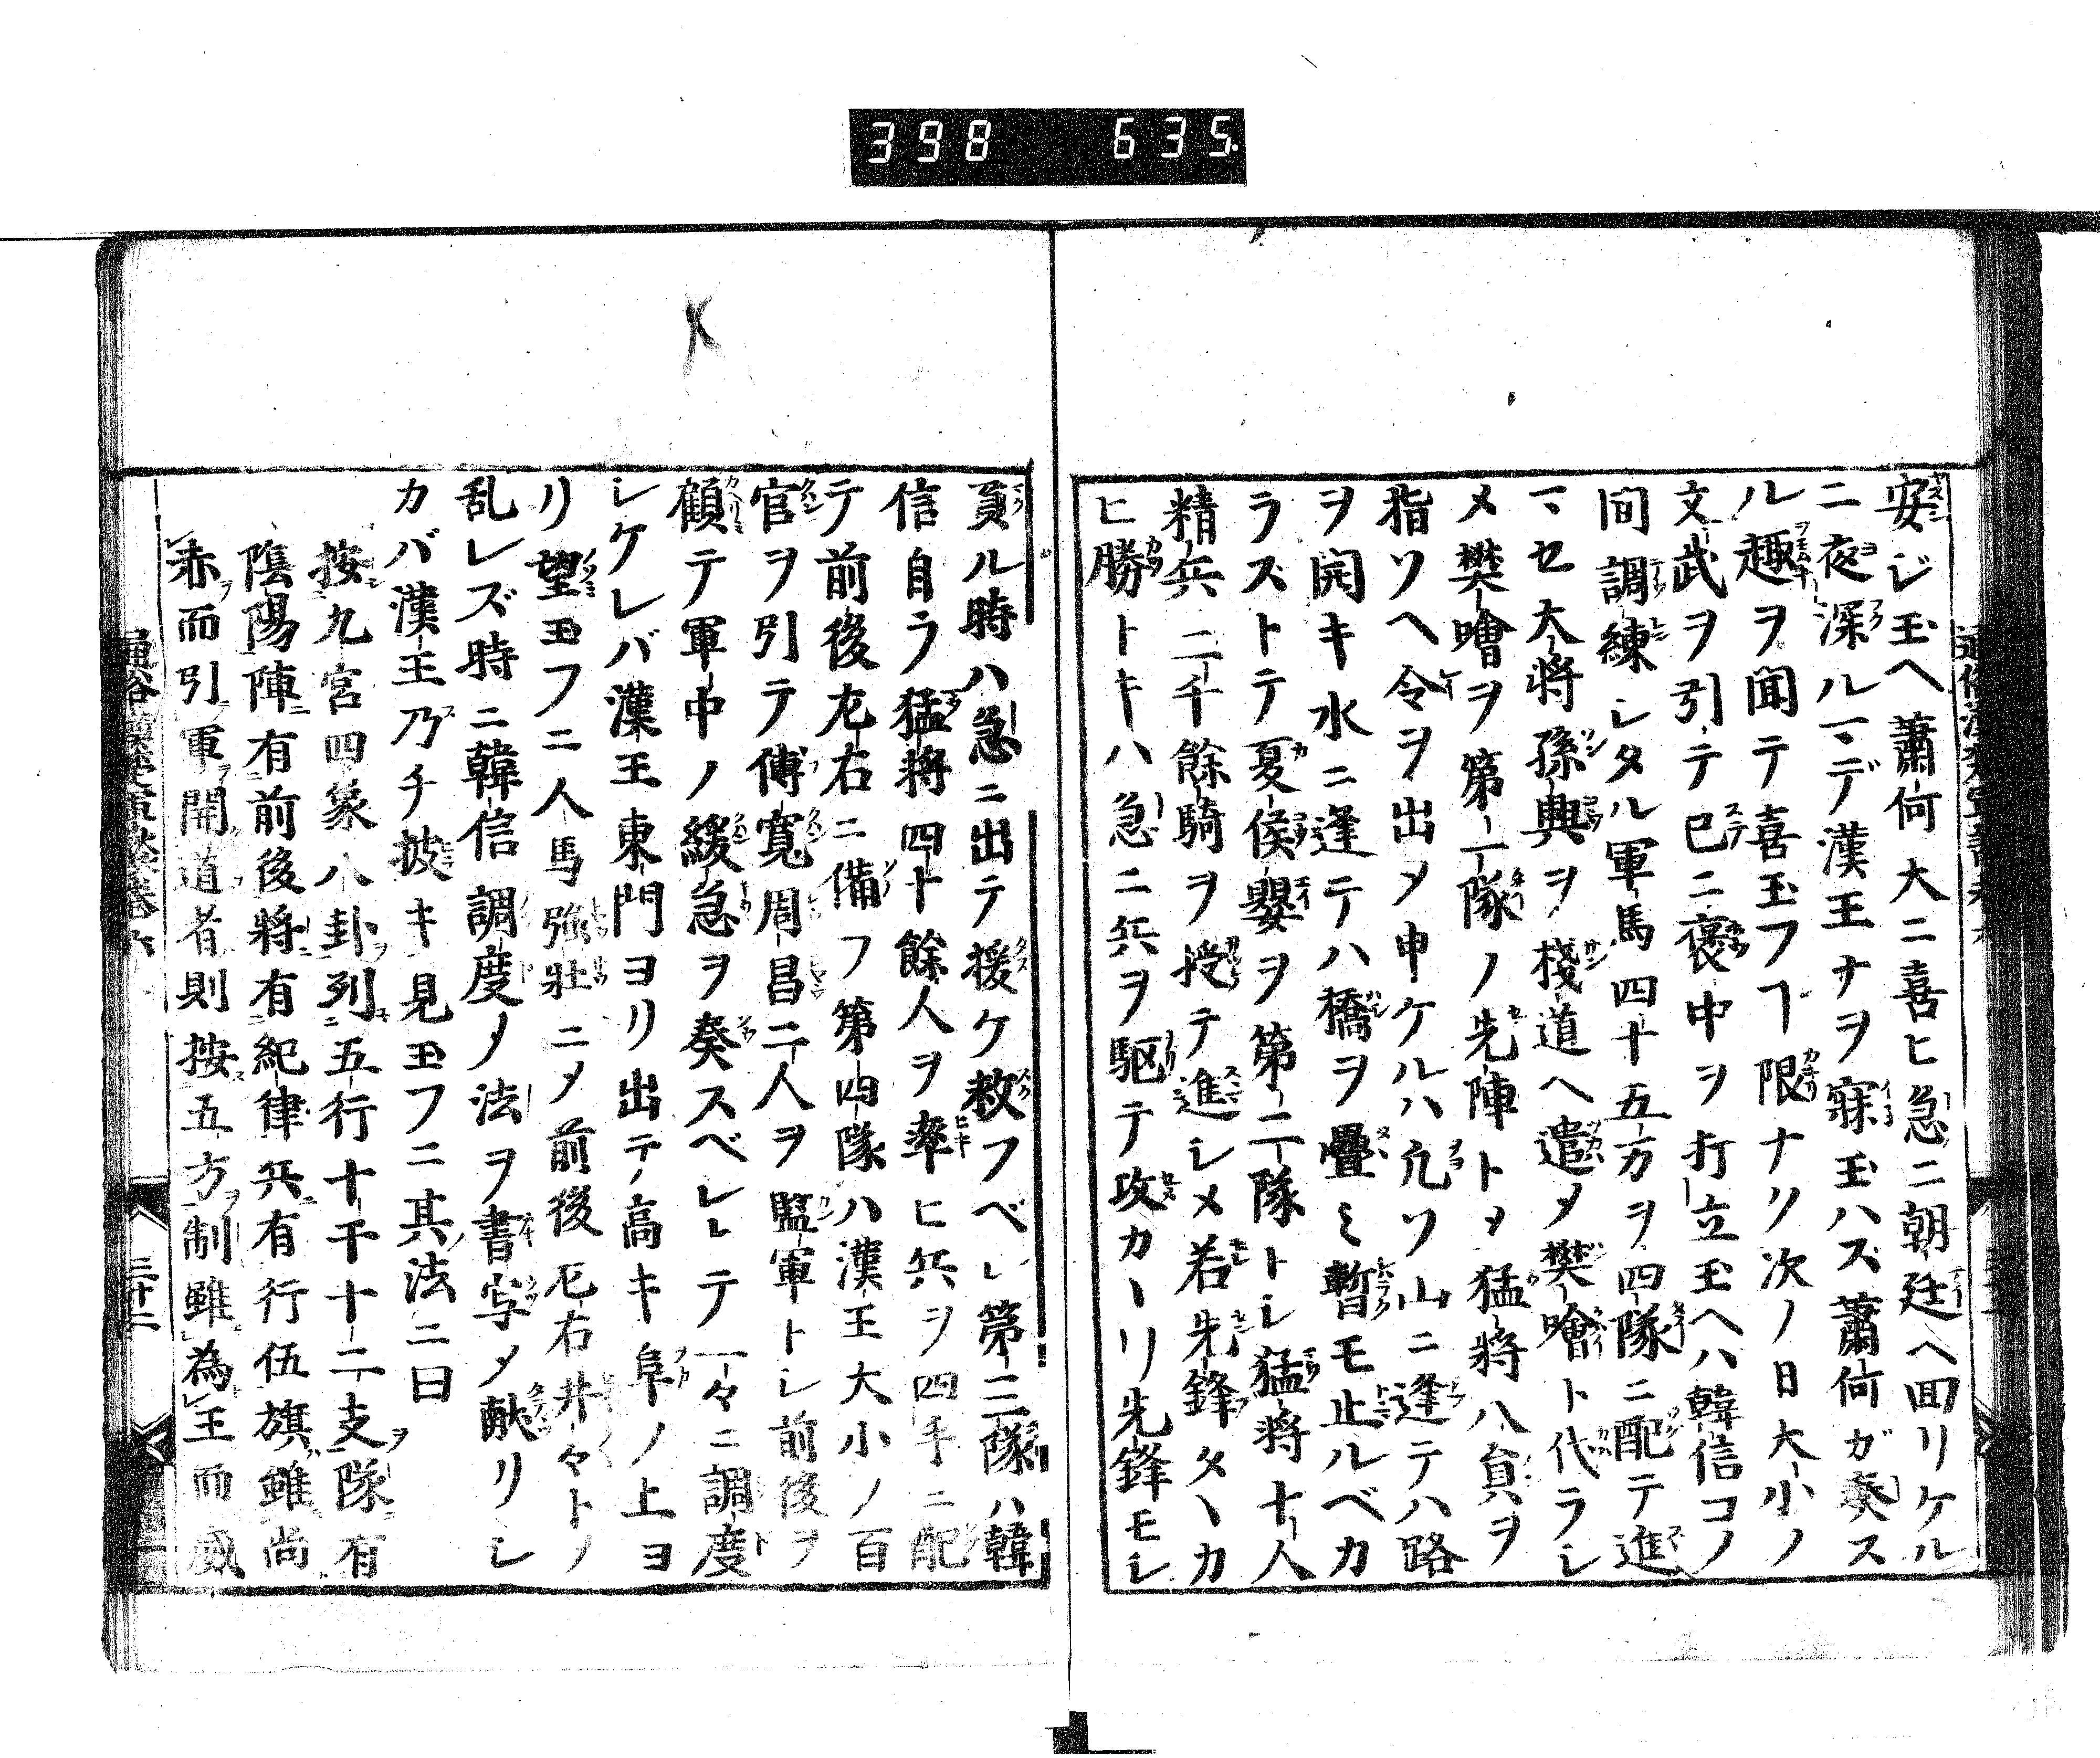 398 635
安ジ玉ヘ蕭何大ニ喜ヒ急ニ朝廷ヘ回リケル
ニ夜深ルマデ漢王ナヲ寐玉ハズ蕭何ガ奏ス
ル趣ヲ聞テ喜玉フヿ限ナリ次ノ日大小ノ
文武ヲ引テ已ニ褒中ヲ打立玉ヘハ韓信コノ
間調練シタル軍馬四十五万ヲ四隊ニ配テ進
マセ大将孫興ヲ棧道ヘ遣メ樊噲ト代ラシ
メ樊噲ヲ第一隊ノ先陣トメ猛将八貟ヲ
指ソヘ令ヲ出メ申ケルハ凢ソ山ニ逢テハ路
ヲ開キ水ニ逢テハ橋ヲ疊ミ暫モ止ルベカ
ラストテ夏侯嬰ヲ第二隊トシ猛将十人
精兵二千餘騎ヲ授テ進シメ若先鋒タヽカ
ヒ勝トキハ急ニ兵ヲ駆テ攻カヽリ先鋒モシ
負ル時ハ急ニ出テ援ケ救フベシ第三隊ハ韓
信自ラ猛将四十餘人ヲ率ヒ兵ヲ四手ニ配
テ前後左右ニ備フ第四隊ハ漢王大小ノ百
官ヲ引テ傅寛周昌二人ヲ監軍トシ前後ヲ
顧テ軍中ノ緩急ヲ奏スベシトテ一々ニ調度
シケレバ漢王東門ヨリ出テ高キ阜ノ上ヨ
リ望玉フニ人馬強壮ニメ前後左右井々トノ
乱レズ時ニ韓信調度ノ法ヲ書写メ献リシ
カバ漢王乃チ披キ見玉フニ其法ニ曰
按九宮四象八卦列五行十干十二支隊有
陰陽陣有前後将有紀律兵有行伍旗雖尚
赤而引軍開道者則按五方制雖為王而威
通俗漢楚軍談巻六
二十二